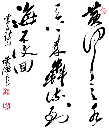 黄河之水天
上来犇流到
海不复回